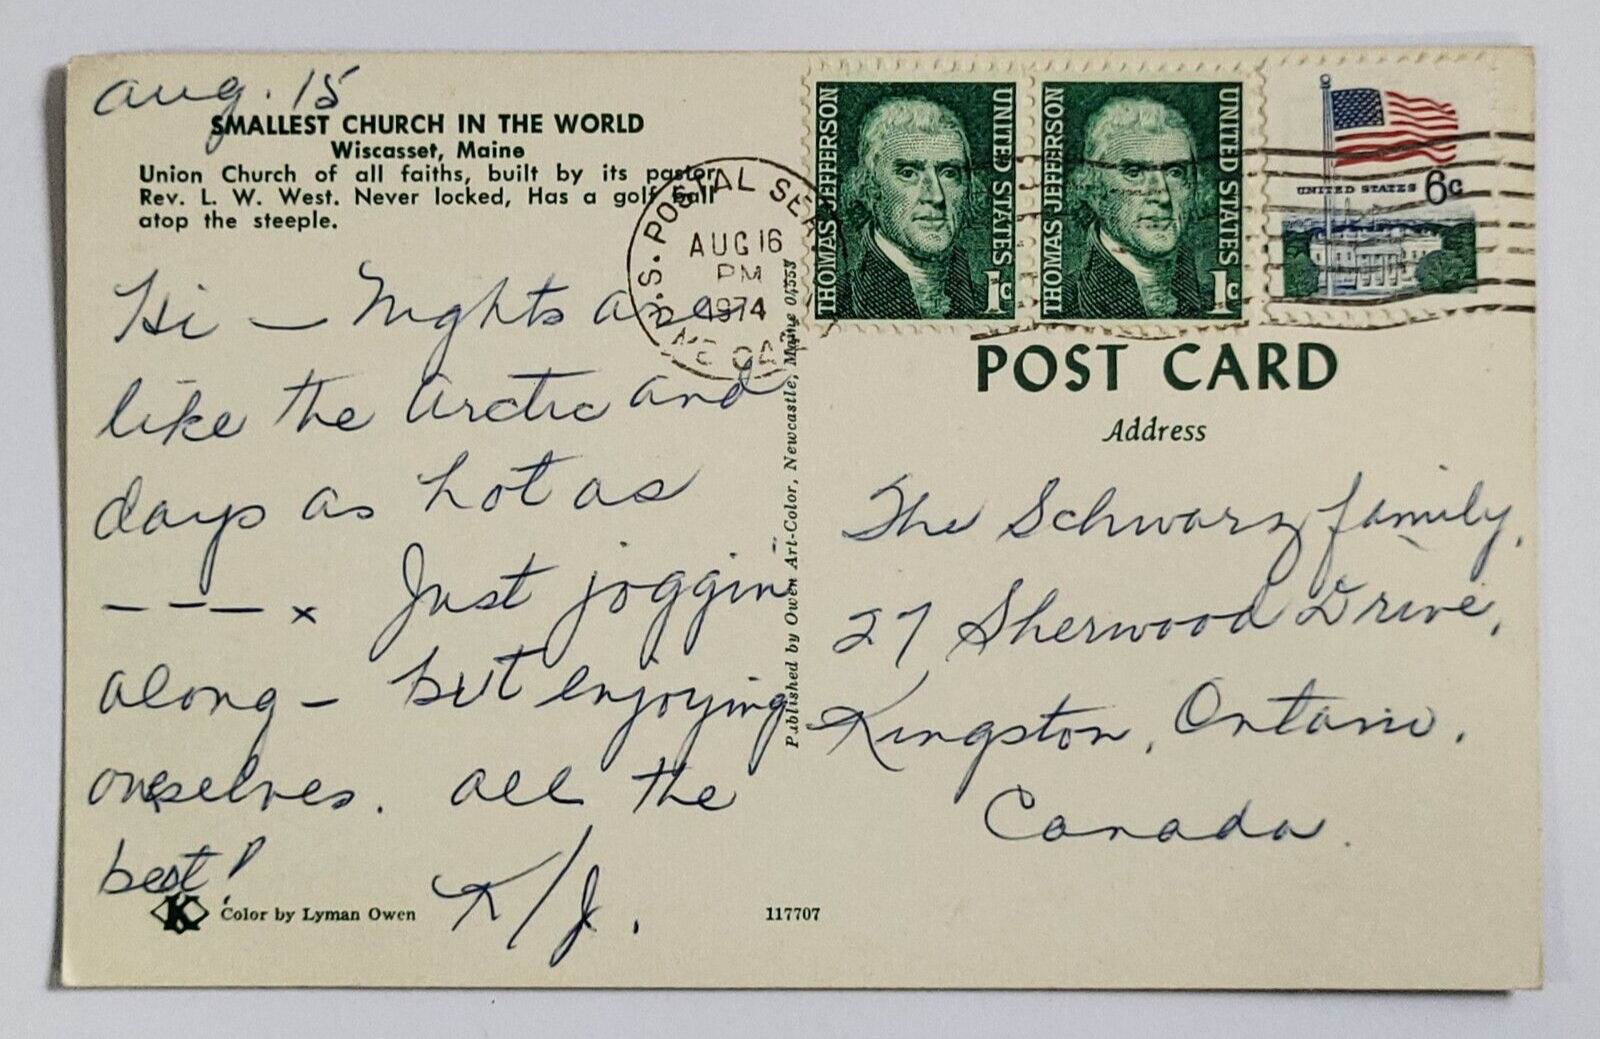 Aug. 15
SMALLEST CHURCH IN THE WORLD
Wiscasset, Maine
Union Church of all faiths, built by its pastor
Rev. L. W. West. Never locked, Has a golf ball
atop the steeple.
Hi — Nights are
like the Arctic and
days as hot as
— — — x Just joggin
along — but enjoying
ourselves. All the
best!
K/J.
Color by Lyman Owen
K
117707
Published by Owen Art-Color, Newcastle, Maine 04553
U.S. POSTAL SER
AUG 16
PM
1974
THOMAS JEFFERSON
UNITED STATES
1c
THOMAS JEFFERSON
UNITED STATES
1c
UNITED STATES 6c
POST CARD
Address
The Schwarz family,
27 Sherwood Drive,
Kingston, Ontario.
Canada.